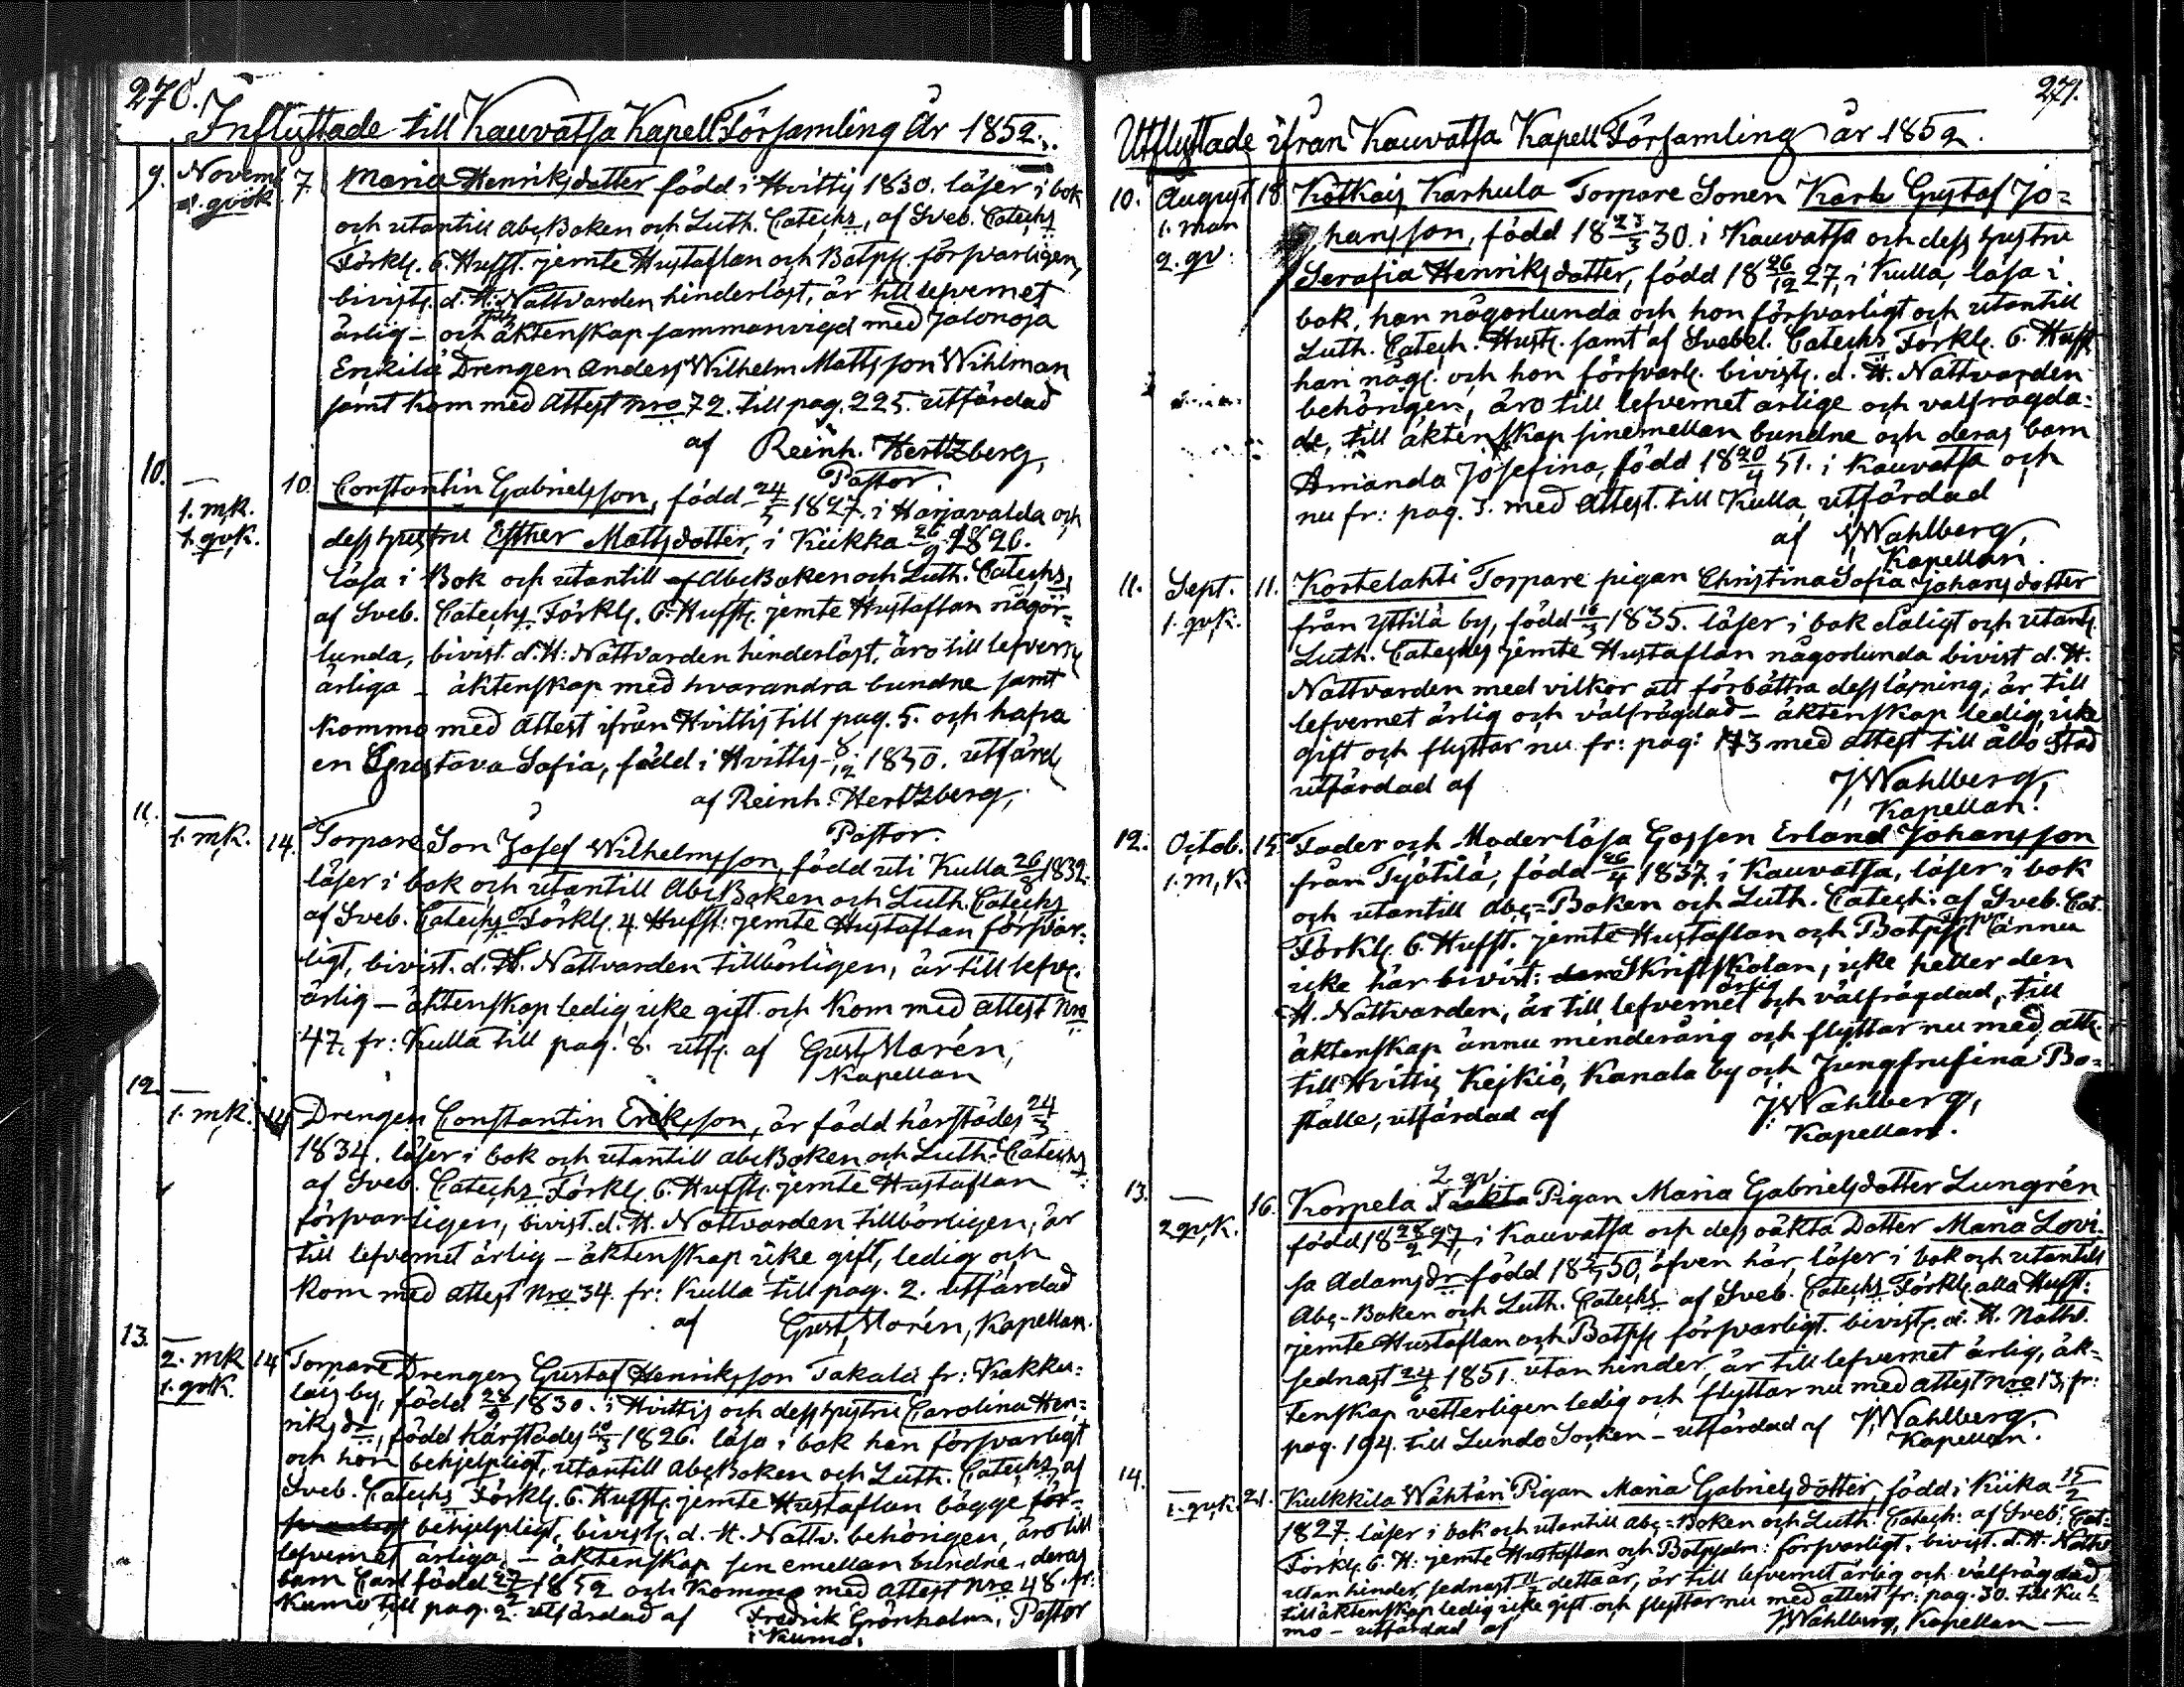 270.
Inflyttade till Kauvatsa Kapell Församling År 1852.
9. Novemb 7. Maria Henriksdotter född i Hvittis 1830. läser i bok
1. qvok. och utantill abcBoken och Luth. Catechs, af Sveb. Catechs
Förkl. 6. Hufst. jemte Hustaflan och Botps. försvarligen,
bivist. d. H: Nattvarden hinderlöst, är till lefvernet
ärlig – och till äktenskap sammanvigd med Jalonoja
Enkilä Drengen Anders Wilhelm Mattsson Wihlman
samt kom med attest Nro 72. till pag. 225. utfärdad
af Reinh. Hertzberg,
Pastor.
10. — 10. Constantin Gabrielsson, född 24/5 1827. i Harjavalda och
1. mk. 1. qvk. dess hustru Esther Mattsdotter, i Kiikka 26/9 1826.
läsa i Bok och utantill af AbcBoken och Luth. Catechs,
af Sveb. Catechs Förkl. 6. Hufst. jemte Hustaflan någor-
lunda, bivist. d. H: Nattvarden hinderlöst, äro till lefvern
ärliga – äktenskap med hvarandra bundne samt
kommo med attest ifrån Hvittis till pag. 5. och hafva
en Gustava Sofia, född i Hvittis 8/12 1850. utfärd
af Reinh. Hertzberg,
Pastor.
11. — 1. mk. 14. Torpare Son Josef Wilhelmsson, född uti Kulla 26/8 1832.
läser i bok och utantill AbcBoken och Luth. Catechs
af Sveb. Catechs Förkl. 4. Hufst: jemte Hustaflan försvar-
ligt, bivist. d. H. Nattvarden tillbörligen, är till lefv.
ärlig – äktenskap ledig icke gift och kom med attest Nro
47. fr: Kulla till pag. 8. utf. af Gust. Morén,
Kapellan
12. — 1. mk. 14 Drengen Constantin Eriksson, är född härstädes 24/3
1834. läser i bok och utantill abcBoken och Luth: Catechs
af Sveb. Catechs Förkl. 6. Hufst. jemte Hustaflan
försvarligen, bivist. d. H. Nattvarden tillbörligen, är
till lefvernet ärlig – äktenskap icke gift, ledig och
kom med attest Nro 34. fr: Kulla till pag. 2. utfärdad
af Gust. Morén, Kapellan.
13. — 2. mk 1. qvk. 14 Torpare Drengen Gustaf Henriksson Takala fr: Kakku-
lais by, född 28/9 1830. i Hvittis och dess hustru Carolina Hen-
riksdr, född härstädes 10/3 1826. läsa i bok han försvarligt
och hon behjelpligt, utantill abcBoken och Luth. Catechs, af
Sveb. Catechs Förkl. 6. Hufst. jemte Hustaflan bägge för-
svarligt behjelpligt, bivist. d. H. Nattv. behörigen, äro till
lefvernet ärliga, – äktenskap sin emellan bundne, deras
barn Carl född 27/2 1852 och kommo med attest Nro 48. fr:
Kumo till pag. 2. utfärdad af Fredrik Grönholm, Pastor
i Kumo.
271.
Utflyttade ifrån Kauvatsa Kapell Församling år 1852.
10. August 18. Kotkais Karhula Torpare Sonen Karl Gustaf Jo-
1. man hansson, född 18 23/3 30. i Kauvatsa och dess hustru
2. qv. Serafia Henriksdotter, född 18 26/12 27, i Kulla, läsa i
bok, han någorlunda och hon försvarligt och utantill
Luth. Catech. Hust. samt af Svebel. Catechs Förkl. 6. Hufst
han någl. och hon försvarl. bivist. d. H. Nattvarden
behörigen, äro till lefvernet ärlige och välfrägda-
de, till äktenskap sinemellan bundne och deras barn
Amanda Josefina, född 18 20/4 51. i Kauvatsa och
nu fr: pag. 3. med attest. till Kulla utfärdad
af JWahlberg,
Kapellan.
11. Sept. 11. Kortelahti Torpare pigan Christina Sofia Johansdotter
1. qvk. från Yttilä by, född 16/3 1835. läser i bok dåligt och utant.
Luth. Cateches jemte Hustaflan någorlunda bivist d. H.
Nattvarden med vilkor att förbättra dess läsning, är till
lefvernet ärlig och välfrägdad – äktenskap ledig, icke
gift och flyttar nu fr: pag: 173 med attest till Åbo Stad
utfärdad af JWahlberg,
Kapellan.
12. Octob. 15. Fader och Moderlösa Gossen Erland Johansson
1. m, k. från Työtilä, född 26/4 1837. i Kauvatsa, läser i bok
och utantill Abc-Boken och Luth. Catech: af Sveb. Cat.
Förkl. 6. Hufst. jemte Hustaflan och Botps. försv. ännu
icke här bivist: den Skriftskolan, icke heller den
H. Nattvarden, är till lefvernet ärlig och välfrägdad, till
äktenskap ännu minderårig och flyttar nu med att.
till Hvittis Kejkiö, Kanala by och Jungfrufina Bo-
ställe, utfärdad af JWahlberg,
Kapellan.
2. qv.
13. — 16. Korpela Pigan Maria Gabrielsdotter Lungrén
2 qv,k. född 18 28/2 27, i Kauvatsa och dess oäkta Dotter Maria Lovi-
sa Adamsdr född 18 50, äfven här, läser i bok och utantill
Abc-Boken och Luth. Catechs af Sveb. Catechs Förkl. alla Hufst:
jemte Hustaflan och Botps försvarligt. bivist. d. H. Nattv.
sednast 24/6 1851. utan hinder, är till lefvernet ärlig, äk-
tenskap vetterligen ledig och flyttar nu med attest Nro 13, fr:
pag. 194. till Lundo Socken – utfärdad af JWahlberg,
Kapellan.
14. — 1. qvk. 21. Kulkkila Wähtäri Pigan Maria Gabrielsdotter, född i Kiika 15/2
1827. läser i bok och utantill Abc-Boken och Luth. Catech: af Sveb: Cat-
Förkl. 6. H: jemte Hustaflan och Botpsalm: försvarligt. bivist. d. H. Nattv
utan hinder sednast detta år, är till lefvernet ärlig och välfrägdad
till äktenskap ledig icke gift och flyttar nu med attest fr: pag. 30. till Ku-
mo – utfärdad af JWahlberg, Kapellan —